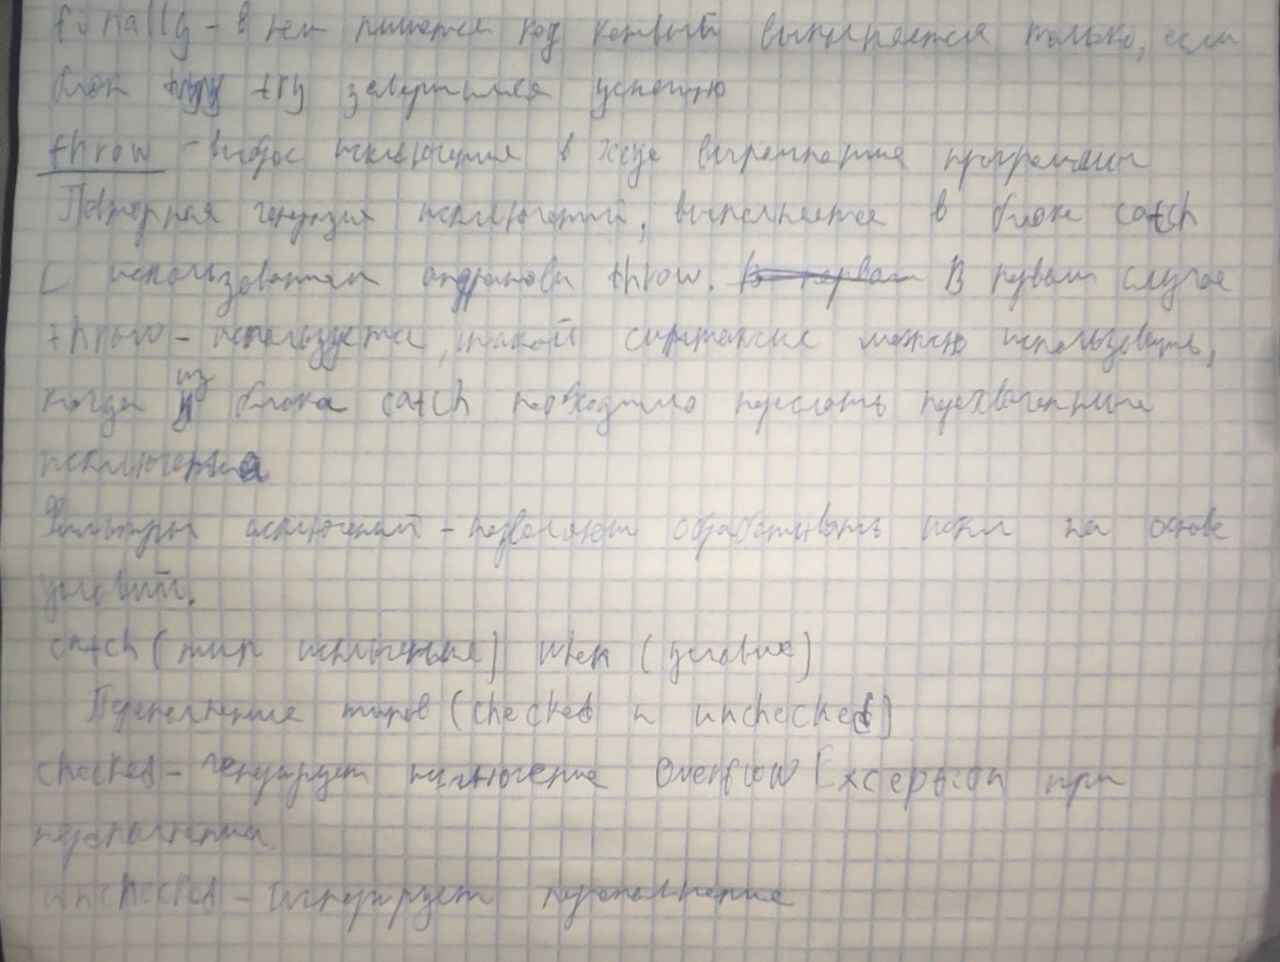 finally - в нем пишется код который выполняется только, если
блок try завершился успешно
throw - выброс исключения в ходе выполнения программы
Повторная генерация исключений, выполняется в блоке catch
С использованием оператора throw. В первом случае
throw - используется, такой синтаксис можно использовать,
когда из блока catch необходимо переслать перехваченные
исключения
Фильтры исключений - позволяют обрабатывать искл на основе
условий.
catch (тип исключения) when (условие)
Переполнение типов (checked и unchecked)
checked - генерирует исключение Overflow Exception при
переполнении.
unchecked - игнорирует переполнение